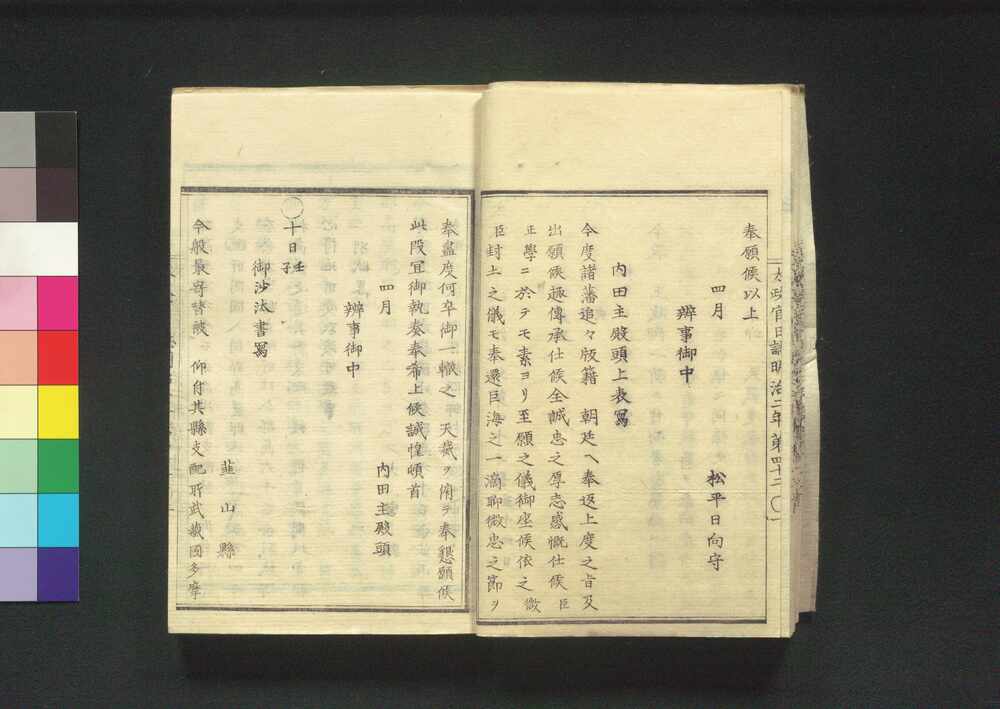 太政官日誌明治二年第四十二〇一
奉願候以上
四月
松平日向守
辨事御中
内田主殿頭上表寫
今度諸藩追々版籍　朝廷ヘ奉返上度之旨及
出願候趣傳承仕候全誠忠之厚志感慨仕候臣
正學ニ於テモ素ヨリ至願之儀御座候依之微
臣封土之儀モ奉還巨海之一滴聊微忠之節ヲ
奉盡度何卒御一轍之　天裁ヲ俯テ奉懇願候
此段宜御執奏奉希上候誠惶頓首
四月
内田主殿頭
辨事御中
〇十日壬子
御沙汰書寫
韮山縣
今般最寄替被　仰付其縣支配所武藏國多摩